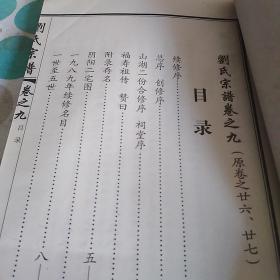 劉氏宗譜卷之九（原卷之廿六、廿七）
目录
续修序
总序　创修序
山湖二份合修序　祠堂序
福寿祖传　赞曰
附录存名
阴阳二宅图
一九八九年续修名目　五
一世至五世　八
劉氏宗譜
卷之九
目录